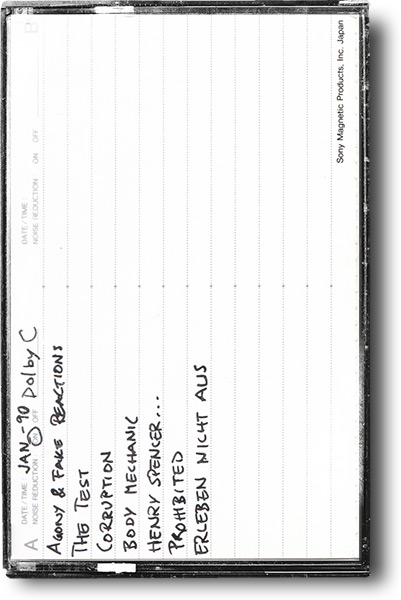 A DATE/TIME JAN-90
NOISE REDUCTION ON OFF Dolby C
AGONY & FAKE REACTIONS
THE TEST
CORRUPTION
BODY MECHANIC
HENRY SPENCER...
PROHIBITED
ERLEBEN NICHT AUS
B DATE/TIME
NOISE REDUCTION ON OFF
Sony Magnetic Products, Inc. Japan